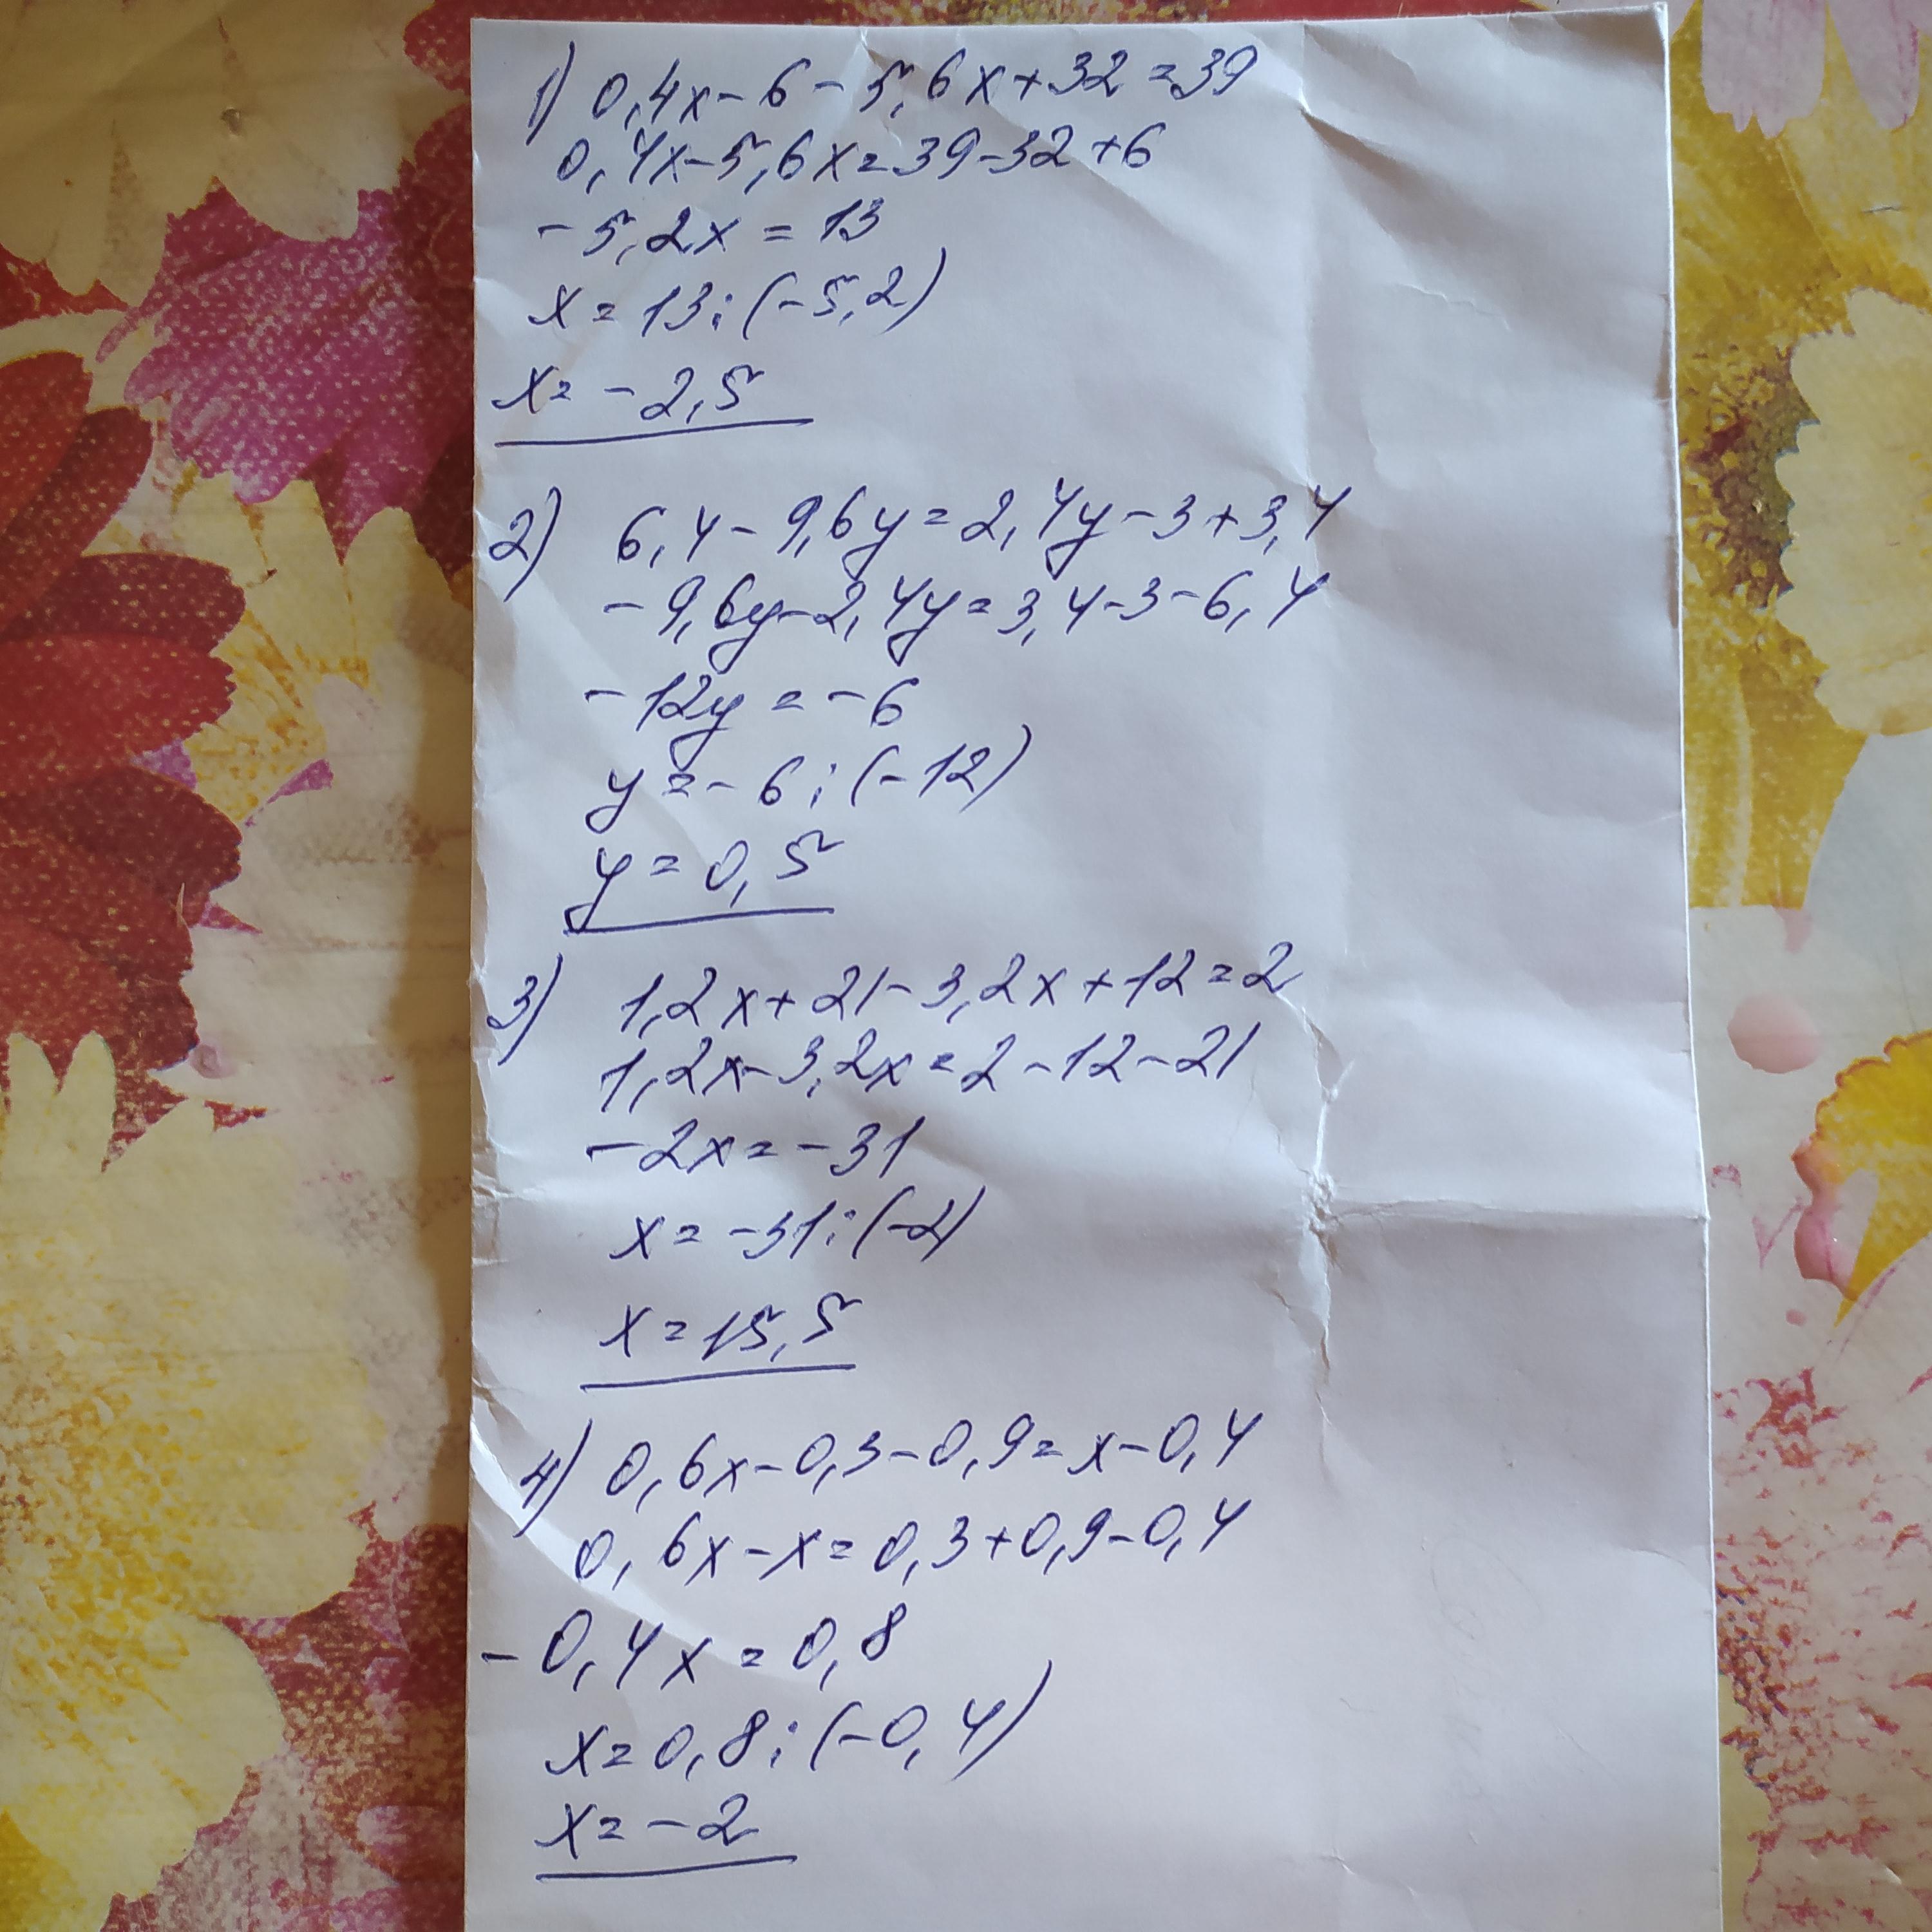 1) 0,4x-6-5,6x+32=39
0,4x-5,6x=39-32+6
-5,2x=13
x=13:(-5,2)
x=-2,5
2) 6,4-9,6y=2,4y-3+3,4
-9,6y-2,4y=3,4-3-6,4
-12y=-6
y=-6:(-12)
y=0,5
3) 1,2x+21-3,2x+12=2
1,2x-3,2x=2-12-21
-2x=-31
x=-31:(-2)
x=15,5
4) 0,6x-0,3-0,9=x-0,4
0,6x-x=0,3+0,9-0,4
-0,4x=0,8
x=0,8:(-0,4)
x=-2